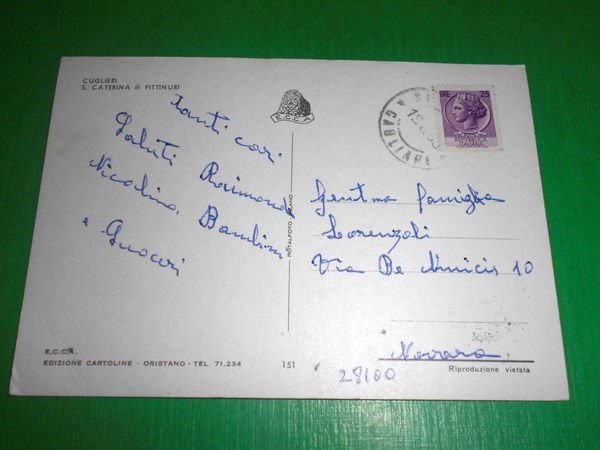 CUGLIERI
S. CATERINA di PITTINURI
E.C.C.A.
Tanti cari
Saluti Raimondo
Nicolina Bambini
e Suoceri
ROTALFOTO MILANO
CAGLIARI
LIRE 25
ITALIANA
Gent.ma famiglia
Lorenzoli
Via De Amicis 10
Novara
28100
E.C.C.A.
EDIZIONE CARTOLINE - ORISTANO - TEL. 71.234
151
Riproduzione vietata